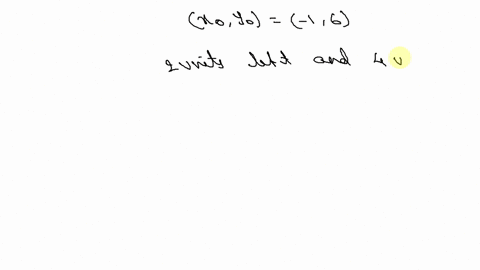 (x₀, y₀) = (-1, 6)
2 units left and 4 u